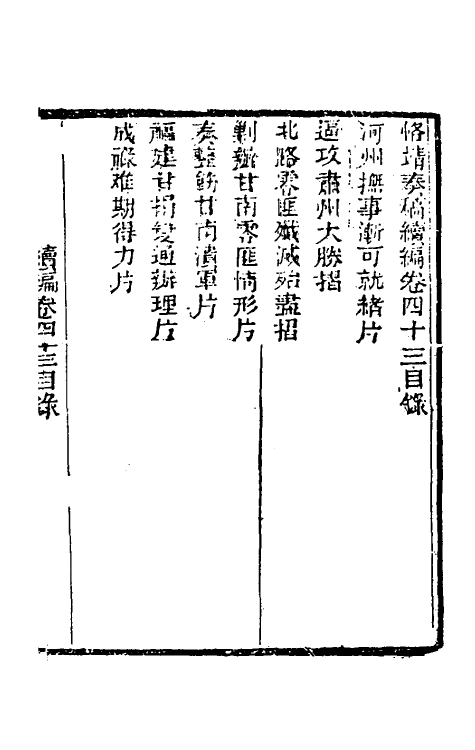 恪靖奏稿續編卷四十三目錄
河州撫事漸可就緒片
逼攻肅州大勝摺
北路零匪殲滅殆盡摺
剿辦甘南零匪情形片
奏整飭甘南潰軍片
福建甘捐變通辦理片
成祿難期得力片
續編卷四十三目錄